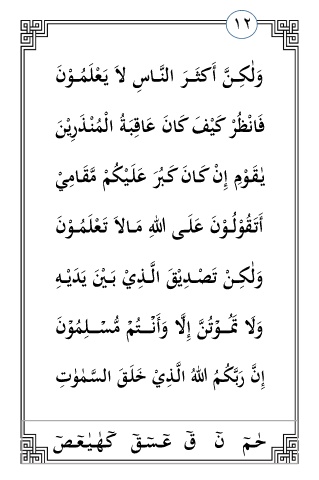 ١٢
وَلٰكِنَّ أَكثَـرَ النَّـاسِ لاَ يَعْلَمُـوْنَ
فَانْظُرْ كَيْفَ كَانَ عَاقِبَةُ الْمُنْذَرِيْنَ
يٰقَوْمِ إِنْ كَـانَ كَبُرَ عَلَيْكُمْ مَّقَامِيْ
أَتَقُوْلُـوْنَ عَلَـى اللهِ مَـالاَ تَعْلَمُـوْنَ
وَلٰكِنْ تَصْـدِيْقَ الَّـذِيْ بَيْـنَ يَدَيْـهِ
وَلَا تَمُـوْتُنَّ إِلَّا وَأَنْـتُمْ مُّسْـلِمُوْنَ
إِنَّ رَبَّكُمُ اللهُ الَّذِيْ خَلَقَ السَّمٰوٰتِ
حٰمٓ نٓ قٓ عٓسٓقٓ كٓهٰيٰعٓصٓ